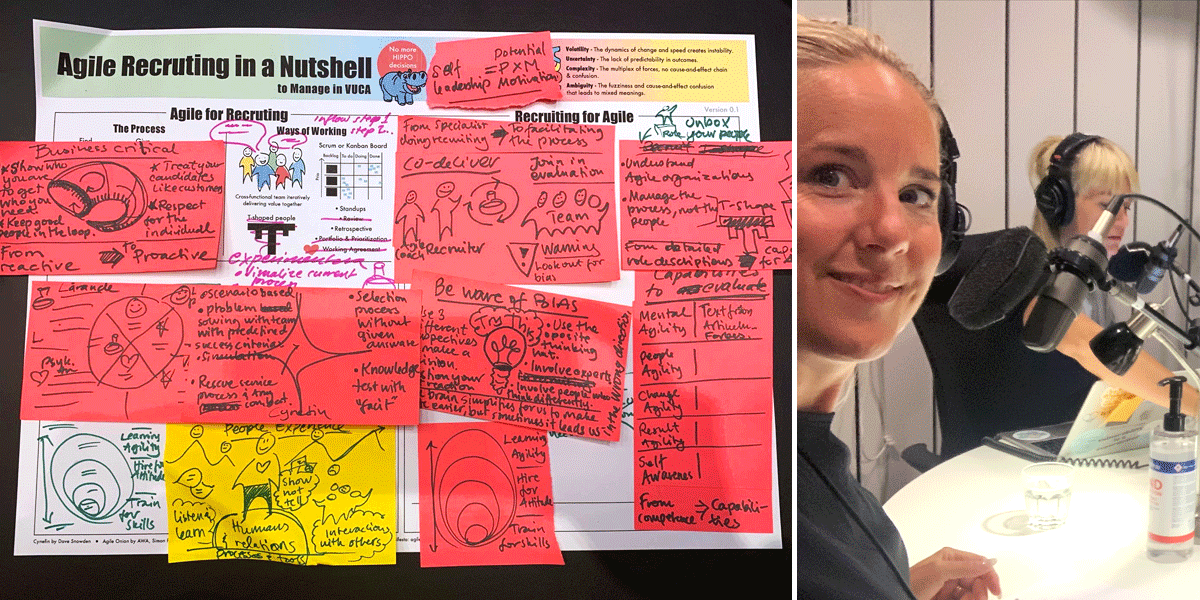 Agile Recruting in a Nutshell
to Manage in VUCA
No more
HIPPO
decisions
Self
leadership
Potential
= P X M
Motivation
Volatility - The dynamics of change and speed creates instability.
Uncertainty - The lack of predictability in outcomes.
Complexity - The multiplex of forces, no cause-and-effect chain
& confusion.
Ambiguity - The fuzziness and cause-and-effect confusion
that leads to mixed meanings.
Version 0.1
Agile for Recruting
The Process
Find
Ways of Working
inflow step 1
step 2..
Scrum or Kanban Board
Backlog To do Doing Done
Cross-functional team iteratively
delivering value together
T-shaped people
• Standups
• Review
• Retrospective
• Portfolio & Prioritization
Working Agreement
experimentera
• Visualize current
process
Business critical
* Show who
you are
to get
who you
need
* Keep good
people in the loop.
* Treat your
candidates
like customers
* Respect
for the
individual
From
reactive
To
Proactive
Recruiting for Agile
Unbox
your people
From specialist
doing recruiting
To facilitating
the process
Co-deliver
Join in
evaluation
Team
Recruiter
Warning
Look out for
bias
• Understand
Agile organizations
• Manage the
process, not the
people
T-shape
From detailed
role descriptions
Lärande
• scenario based
• problem
solving with team
with predefined
success criteria
• Simulation
• Rescue service
process & any
combat.
Cynefin
• Selection
process
without
given
answare
• Knowledge
test with
"facit"
Be ware of BIAS
Try this
• Use the
opposite
thinking
hat.
• Involve experts
• Involve people who
think differently.
brain simplifies for us to make
easier, but sometimes it leads us
in the wrong direction
Capabilities
to evaluate
Mental
Agility
People
Agility
Change
Agility
Result
Agility
Self
Awarenes
From
competence
Capabili-
ties
Learning
Agility
Hire for
Attitude
Train
for
skills
People Experience
Show
not
tell
Listening
Learn
Humans
& relations
processes & tools
Interactions
with others.
Learning
Agility
Hire
for
Attitude
Train
for skills
Cynefin by Dave Snowden • Agile Onion by AWA, Simon